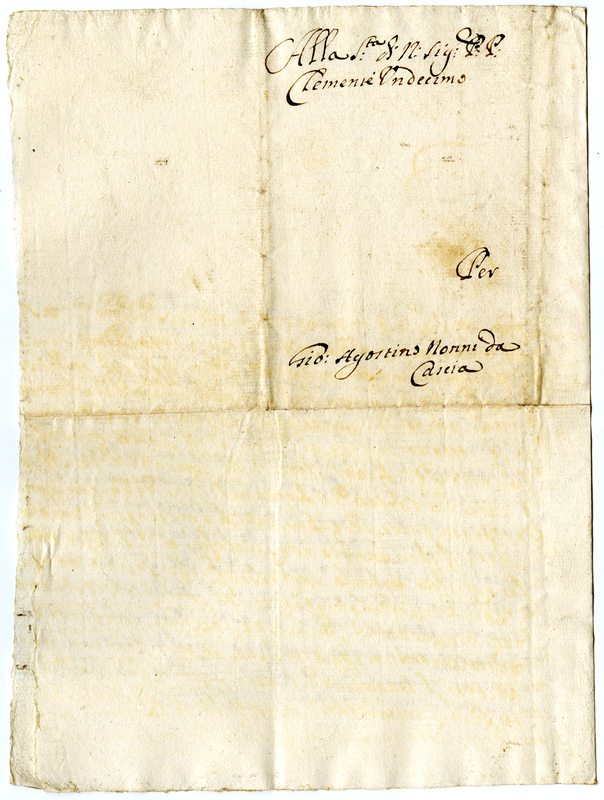 Alla S.ta di N. Sig.re P.P.
Clemente Undecimo
Per
Gio: Agostino Nonni da
Cascia